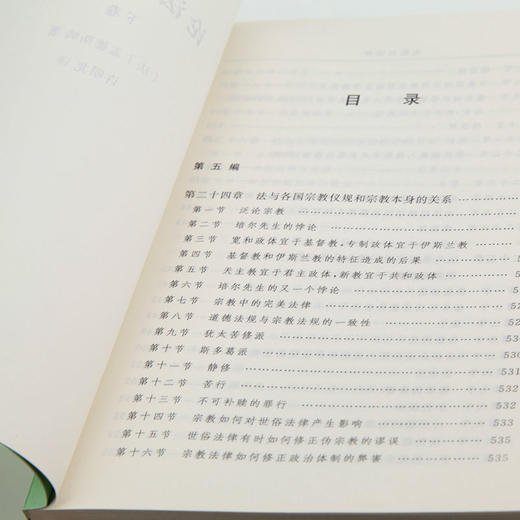 论法
下卷
〔法〕孟德斯鸠 著
许明龙 译
目 录
第五编
第二十四章 法与各国宗教仪规和宗教本身的关系
第一节 泛论宗教
第二节 培尔先生的悖论
第三节 宽和政体宜于基督教,专制政体宜于伊斯兰教
第四节 基督教和伊斯兰教的特征造成的后果
第五节 天主教宜于君主政体,新教宜于共和政体
第六节 培尔先生的又一个悖论
第七节 宗教中的完美法律
第八节 道德法规与宗教法规的一致性
第九节 犹太苦修派
第十节 斯多葛派 530
第十一节 静修 531
第十二节 苦行 532
第十三节 不可补赎的罪行 532
第十四节 宗教如何对世俗法律产生影响 533
第十五节 世俗法律有时如何修正伪宗教的谬误 535
第十六节 宗教法律如何修正政治体制的弊害 535